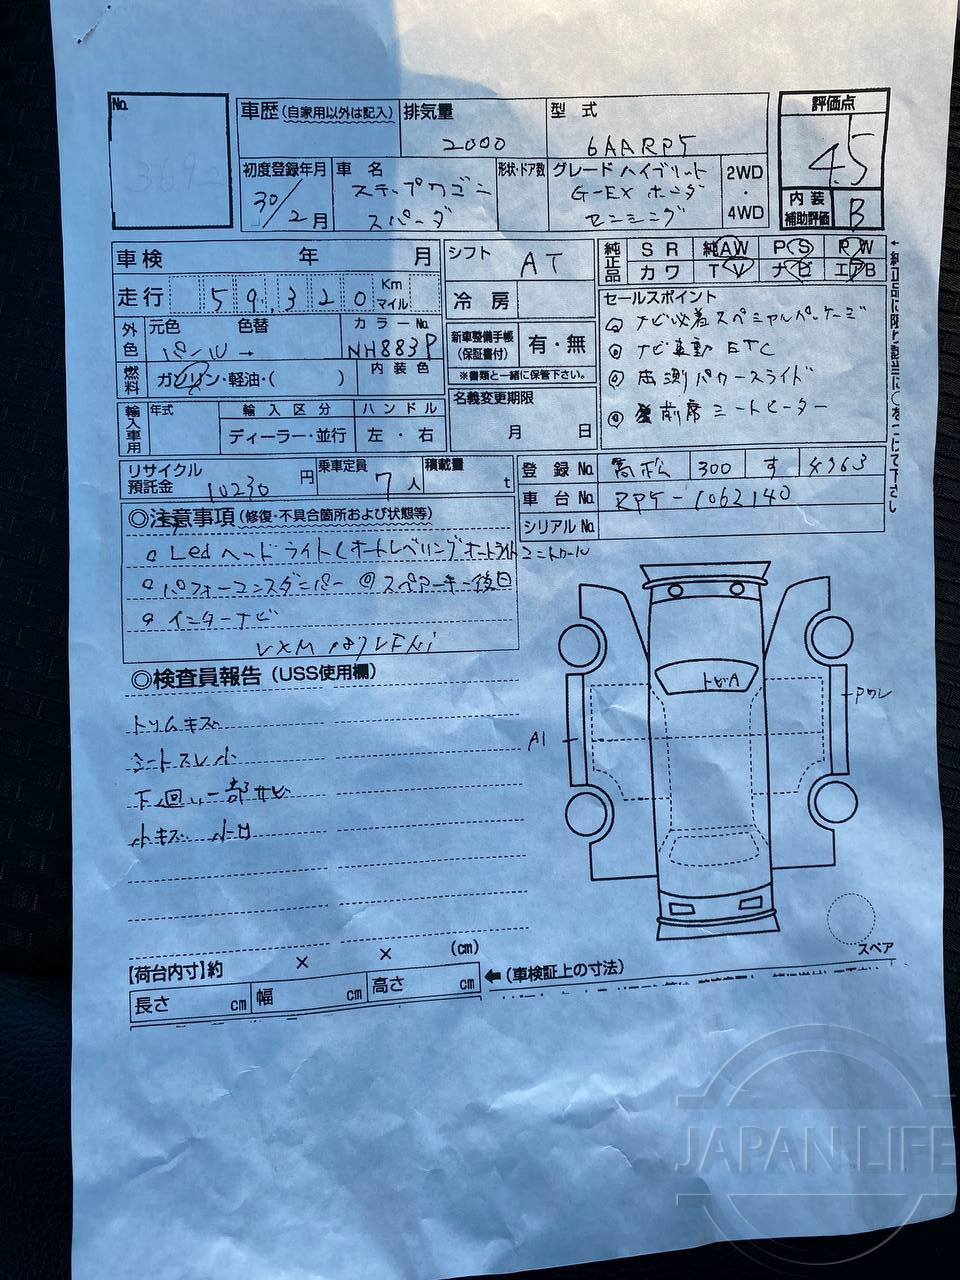 No.
車歴(自家用以外は記入) 排気量 型式 評価点
2000 6AARP5 4.5
初度登録年月 車名 形状・ドア数 グレード ハイブリット 2WD・4WD 内装補助評価 B
30/2月 ステップワゴン スパーダ G-EX ホンダ センシング
車検 年 月 シフト AT 純正品 SR 純AW PS RW
カワ TV ナビ エアB
走行 59,320 Km マイル 冷房
セールスポイント
ナビ必着スペシャルパッケージ
外色 元色 色替 カラーNo. 新車整備手帳(保証書付) 有・無
パール→ NH883P ナビ連動ETC
※書類と一緒に保管下さい。
燃料 ガソリン・軽油・( ) 内装色
両側パワースライド
名義変更期限
輸入車用 年式 輸入区分 ハンドル
前席シートヒーター
ディーラー・並行 左・右 月 日
リサイクル預託金 10230円 乗車定員 7人 積載量 t 登録No. 300 す 4963
車台No. RP5-1062140
シリアルNo.
◎注意事項(修復・不具合箇所および状態等)
Ledヘッドライト(オートレベリングオートライトコントロール
パフォーマンスダンパー ◎スペアーキー後日
インターナビ
◎検査員報告(USS使用欄)
トビA
Pワレ
トリムキズ
A1
シートスレ小
下回り一部サビ
小キズ 小凹
スペア
【荷台内寸】約 × × (cm)
←(車検証上の寸法)
長さ cm 幅 cm 高さ cm
JAPAN LIFE